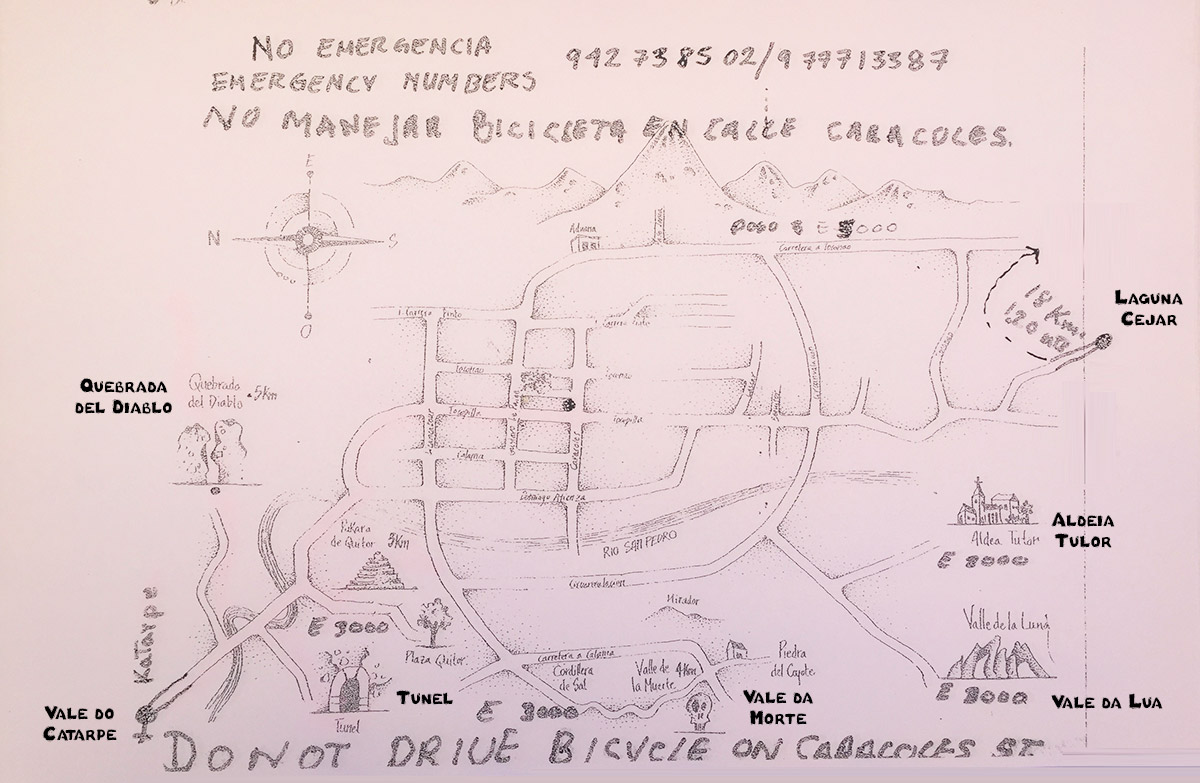 NO EMERGENCIA
EMERGENCY NUMBERS
942 73 85 02/9 77713387
NO MANEJAR BICICLETA EN CALLE CARACOLES.
E
N
S
O
Aduana
Carretera a Toconao
18 Km.
LAGUNA
CEJAR
QUEBRADA
DEL DIABLO
Quebrada
del Diablo
5Km
Tocopilla
Tocopilla
Calama
Domingo Atienza
Pukara
de Quitor 3Km
RIO SAN PEDRO
ALDEIA
TULOR
Aldea Tulor
Katarpe
E 3000
Plaza Quitor
Mirador
Carretera a Calama
Cordillera
de Sal
Valle de
la Muerte
4Km
Piedra
del Coyote
Valle de la Luna
E 3000
VALE DA LUA
TUNEL
Tunel
E 3000
VALE DA
MORTE
VALE DO
CATARPE
DO NOT DRIVE BICYCLE ON CARACOLES ST